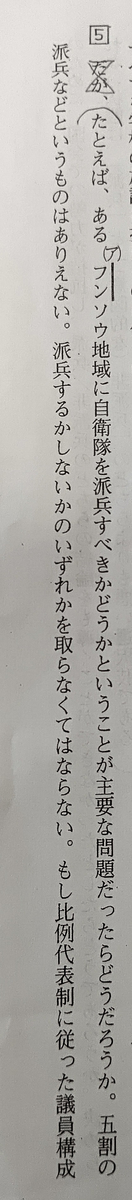 5 だが、たとえば、ある(ア)フンソウ地域に自衛隊を派兵すべきかどうかということが主要な問題だったらどうだろうか。五割の
派兵などというものはありえない。派兵するかしないかのいずれかを取らなくてはならない。もし比例代表制に従った議員構成